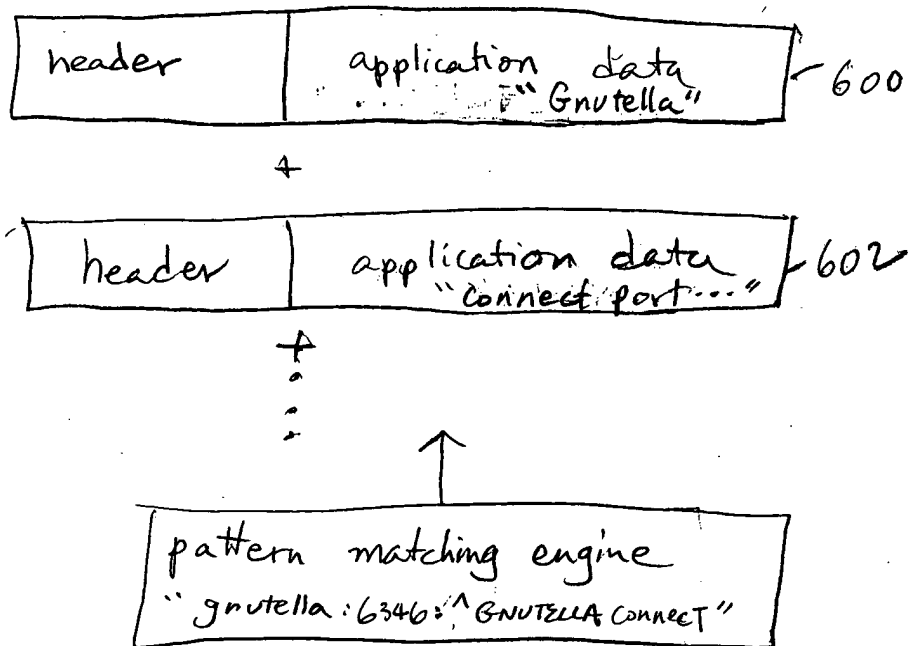 header
application data
"Gnutella"
600
+
header
application data
"connect port..."
602
+
pattern matching engine
"gnutella:6346:^GNUTELLA CONNECT"